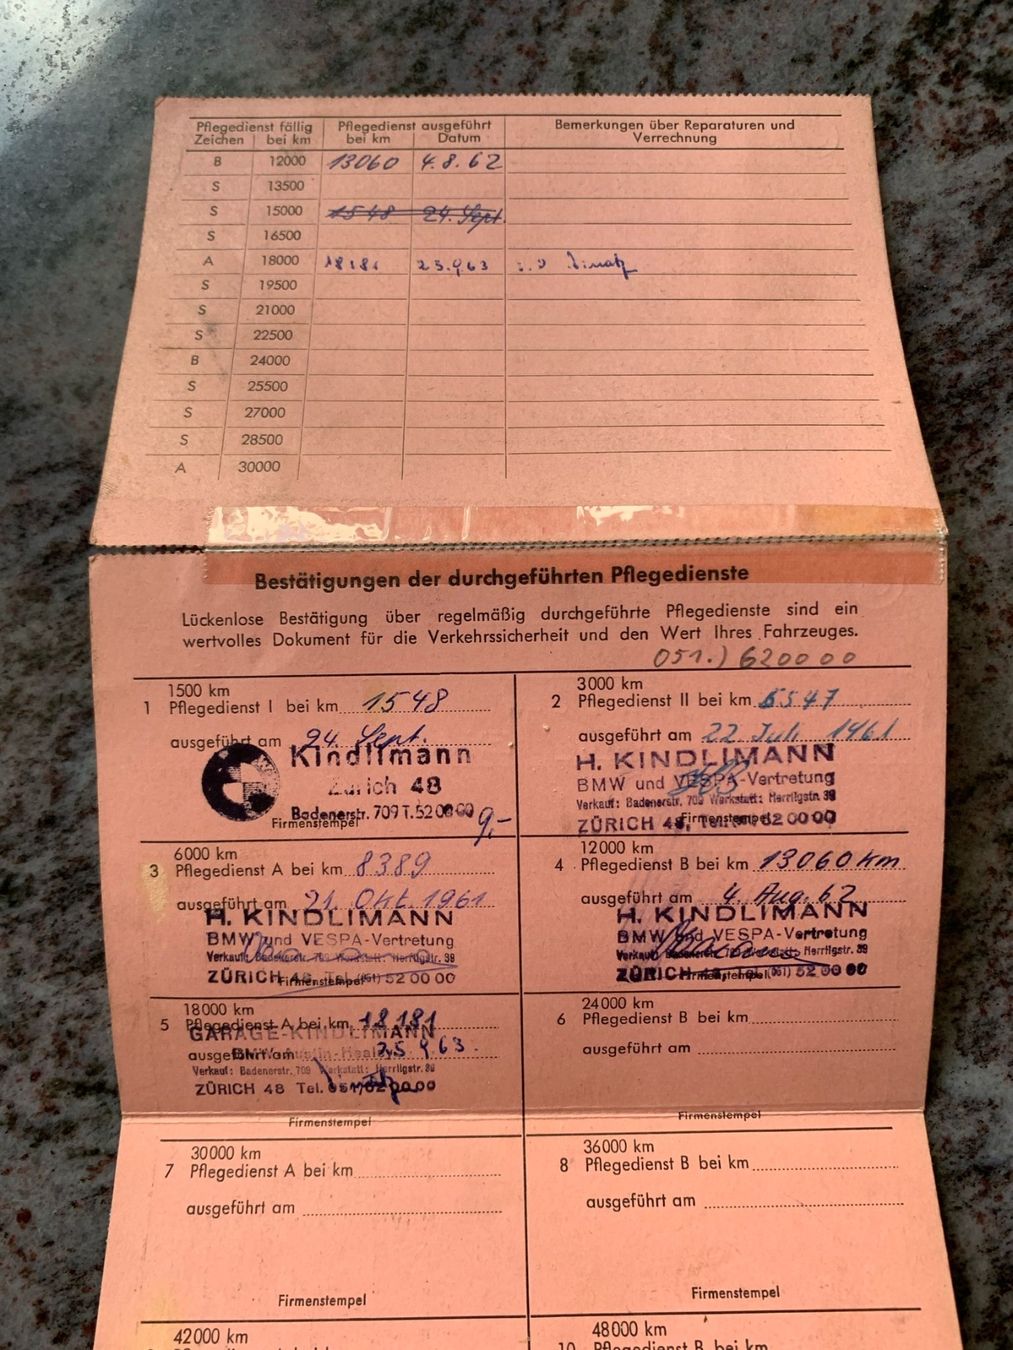 Pflegedienst fällig Pflegedienst ausgeführt Bemerkungen über Reparaturen und
Zeichen bei km bei km Datum Verrechnung
B 12000 13060 4.8.62
S 13500
S 15000 1548 24. Sept.
S 16500
A 18000 18181 25.9.63
S 19500
S 21000
S 22500
B 24000
S 25500
S 27000
S 28500
A 30000
Bestätigungen der durchgeführten Pflegedienste
Lückenlose Bestätigung über regelmäßig durchgeführte Pflegedienste sind ein
wertvolles Dokument für die Verkehrssicherheit und den Wert Ihres Fahrzeuges.
051.) 620000
1500 km
1 Pflegedienst I bei km 1548
ausgeführt am 24. Sept.
Kindlimann
Zürich 48
Badenerstr. 709 T. 52 00 00
9,-
Firmenstempel
3000 km
2 Pflegedienst II bei km 5547
ausgeführt am 22 Juli 1961
H. KINDLIMANN
BMW und VESPA-Vertretung
Verkauf: Badenerstr. 709 Werkstatt: Herrligstr. 39
Firmenstempel
ZÜRICH 48, Tel. 52 00 00
6000 km
3 Pflegedienst A bei km 8389
ausgeführt am 21. Okt. 1961
H. KINDLIMANN
BMW und VESPA-Vertretung
Verkauf: Badenerstr. 709 Werkstatt: Herrligstr. 39
ZÜRICH 48, Tel. (051) 52 00 00
Firmenstempel
12000 km
4 Pflegedienst B bei km 13060 km
ausgeführt am 4. Aug. 62
H. KINDLIMANN
BMW und VESPA-Vertretung
Verkauf: Badenerstr. 709 Werkstatt: Herrligstr. 39
ZÜRICH 48, Tel. (051) 52 00 00
Firmenstempel
18000 km
5 Pflegedienst A bei km 18181
GARAGE-KINDLIMANN
ausgeführt am 25.9.63.
BMW Austin-Healey
Verkauf: Badenerstr. 709 Werkstatt: Herrligstr. 39
ZÜRICH 48 Tel. 051/62 00 00
Firmenstempel
24000 km
6 Pflegedienst B bei km
ausgeführt am
Firmenstempel
30000 km
7 Pflegedienst A bei km
ausgeführt am
Firmenstempel
36000 km
8 Pflegedienst B bei km
ausgeführt am
Firmenstempel
42000 km
48000 km
10 Pflegedienst B bei km